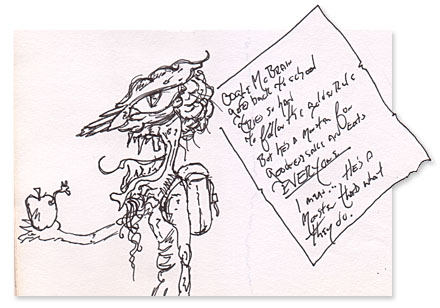 Goofi McBrain
goes back to school
tries so hard
to follow the Golden Rule
But he's a monster for
goodness sake and eats
EVERYONE
I mean... He's a
Monster thats what
they do.